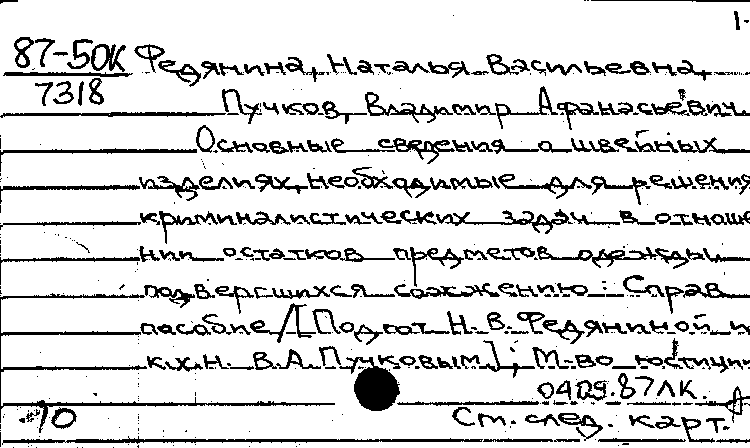 1-
87-50К Федянина, Наталья Васильевна,
7318
Пучков, Владимир Афанасьевич
Основные сведения о швейных
изделиях, необходимые для решения
криминалистических задач в отноше
нии остатков предметов одежды,
подвергшихся сожжению: Справ.
пособие / [Подгот. Н.В. Федяниной и
к.х.н. В.А. Пучковым]; М-во юстиции
04.09.87ЛК.
10 См. след. карт.